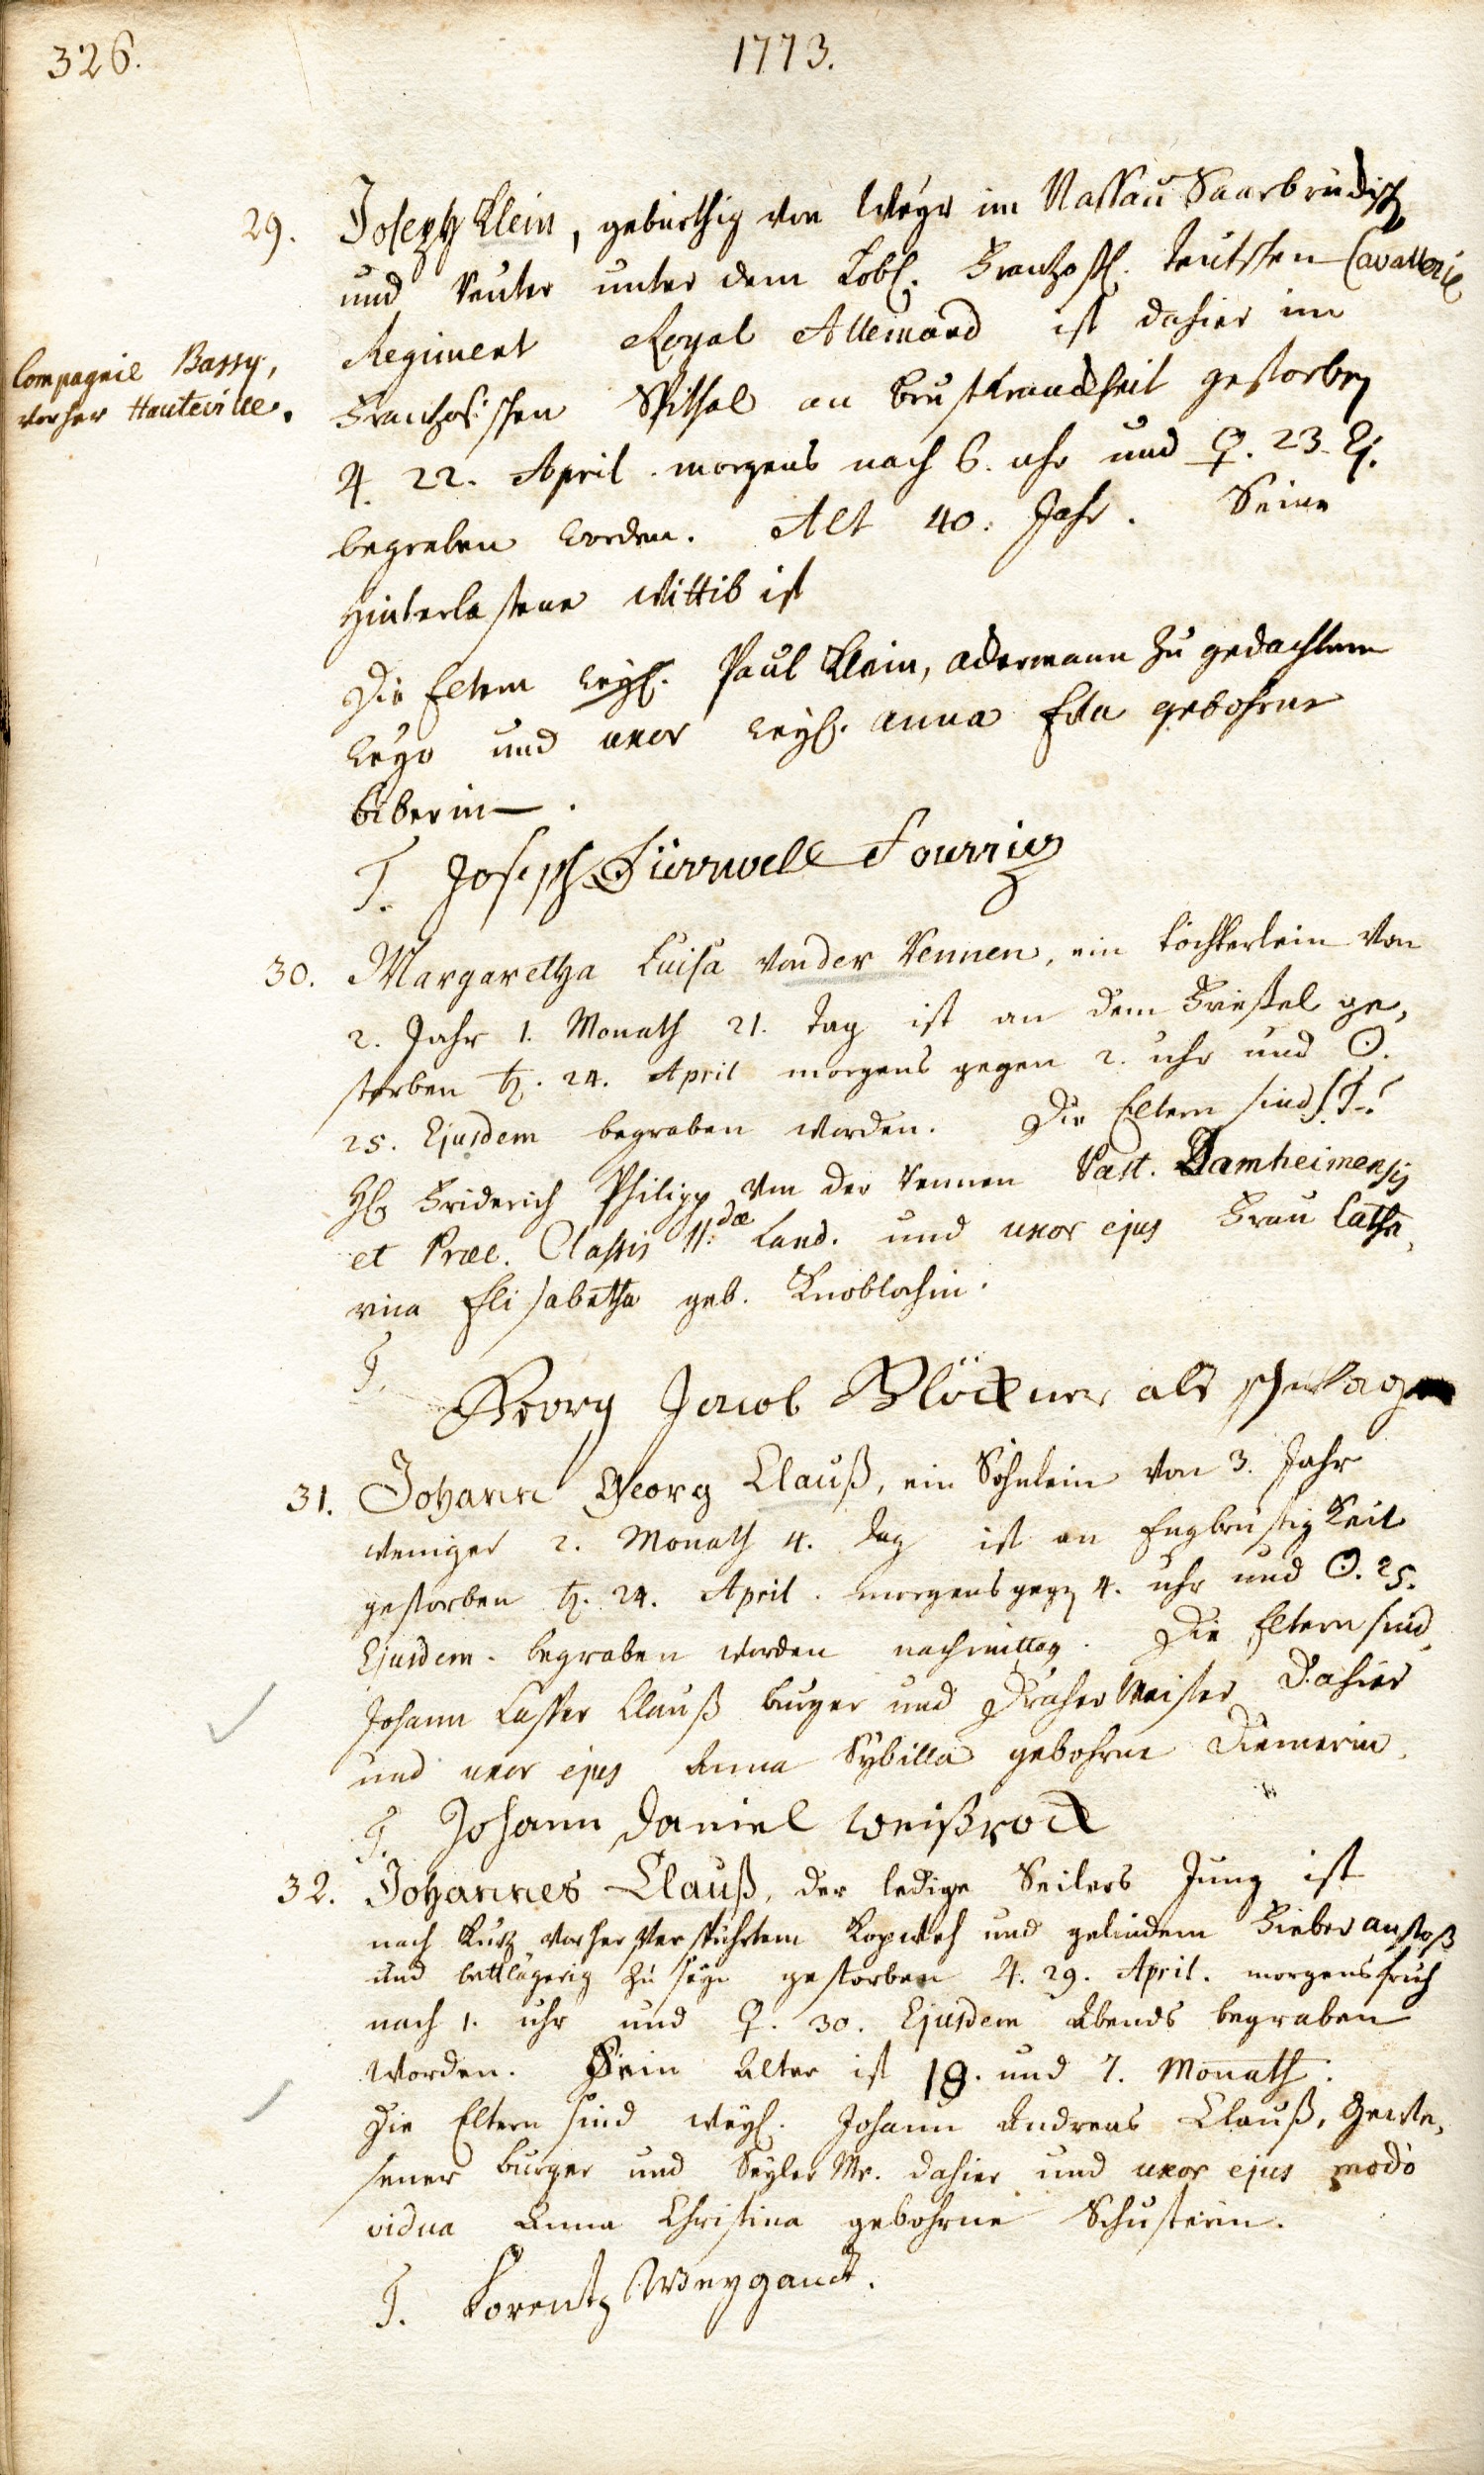 326.
1773.
29. Joseph Klein, gebürthig von Weyr im Nassau Saarbrückisch
und Reuter unter dem Löbl. Französ. Teutschen Cavallerie
Regiment Royal Allemand ist dahier im
Compagnie Bassy,
vorher Hauteville.
Französischen Spithal an Brustkranckheit gestorben
♃. 22. April. morgens nach 6. uhr und ♀. 23. Ej.
begraben worden. Alt 40. Jahr. Seine
Hinterlassene Wittib ist
Die Eltern weyl. Paul Klein, ackermann zu gedachtem
Weyr und uxor weyl. anna Eva gebohrne
Biberin.
T. Joseph Fourrier
30. Margaretha Luisa von der Nennen, ein töchterlein von
2. Jahr 1. Monath 21. tag ist an dem Frießel ge,
storben ♄. 24. April morgens gegen 2. uhr und ☉.
25. Ejusdem begraben worden. Die Eltern sind S. T.
H. Friderich Philipp von der Nennen Past. Damheimensis
et Præl. Classis II.dæ Land. und uxor ejus Frau Catha,
rina Elisabetha geb. Knoblochin.
T.
Georg Jacob Glöckner als
31. Johann Georg Clauß, ein Söhnlein von 3. Jahr
weniger 2. Monath 4. Tag ist an Engbrüstigkeit
gestorben ♄. 24. April. morgens gegen 4. uhr und ☉. 25.
Ejusdem. begraben worden nachmittag. Die Eltern sind,
Johann Casper Clauß burger und Dräher Meister Dahier
und uxor ejus Anna Sybilla gebohrne Diemerin.
T. Johann Daniel Weißrock
32. Johannes Clauß, der ledige Seilers Jung ist
nach kurz vorher verspührtem Kopweh und gelindem Fieber anstoß
und bettlägerig zu seyn gestorben ♃. 29. April. morgens früh
nach 1. uhr und ♀. 30. Ejusdem Abends begraben
worden. Sein Alter ist 18. und 7. Monath.
Die Eltern sind weyl. Johann Andreas Clauß, Gewe,
sener burger und Seyler Mr. dahier und uxor ejus modò
vidua Anna Christina gebohrne Schusterin.
T. Lorentz Weygandt.